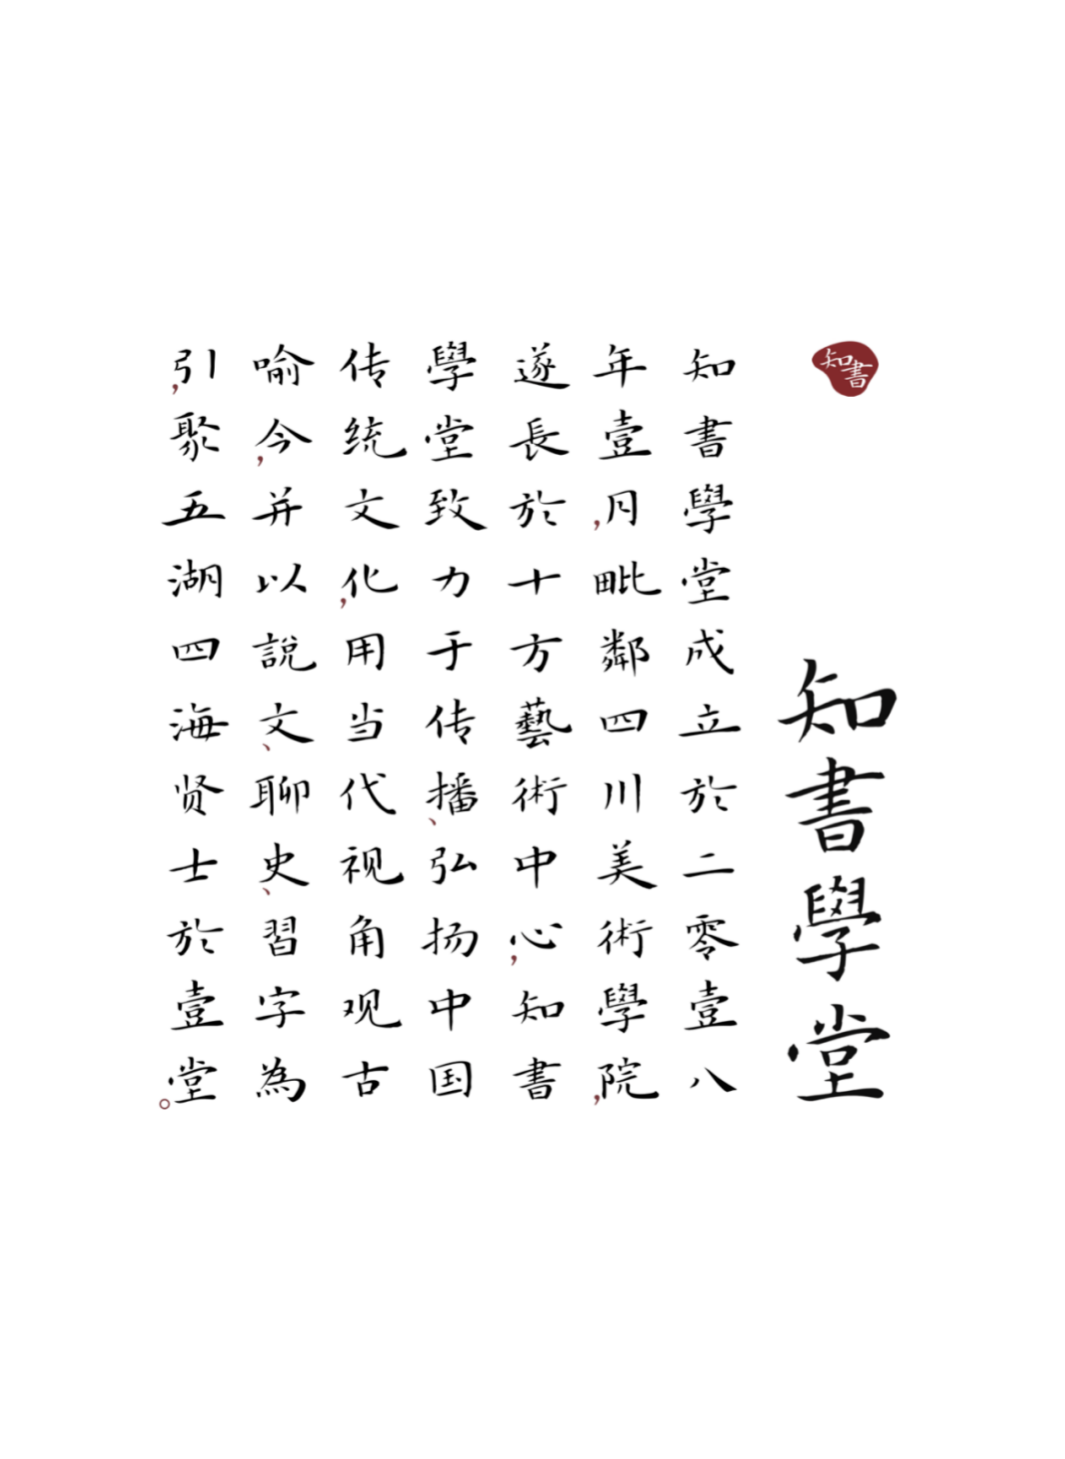 知書
知書學堂
知書學堂成立於二零壹八
年壹月，毗鄰四川美術學院，
遂長於十方藝術中心，知書
學堂致力于传播、弘扬中国
传统文化，用当代视角观古
喻今，并以說文、聊史、習字為
引，聚五湖四海贤士於壹堂。